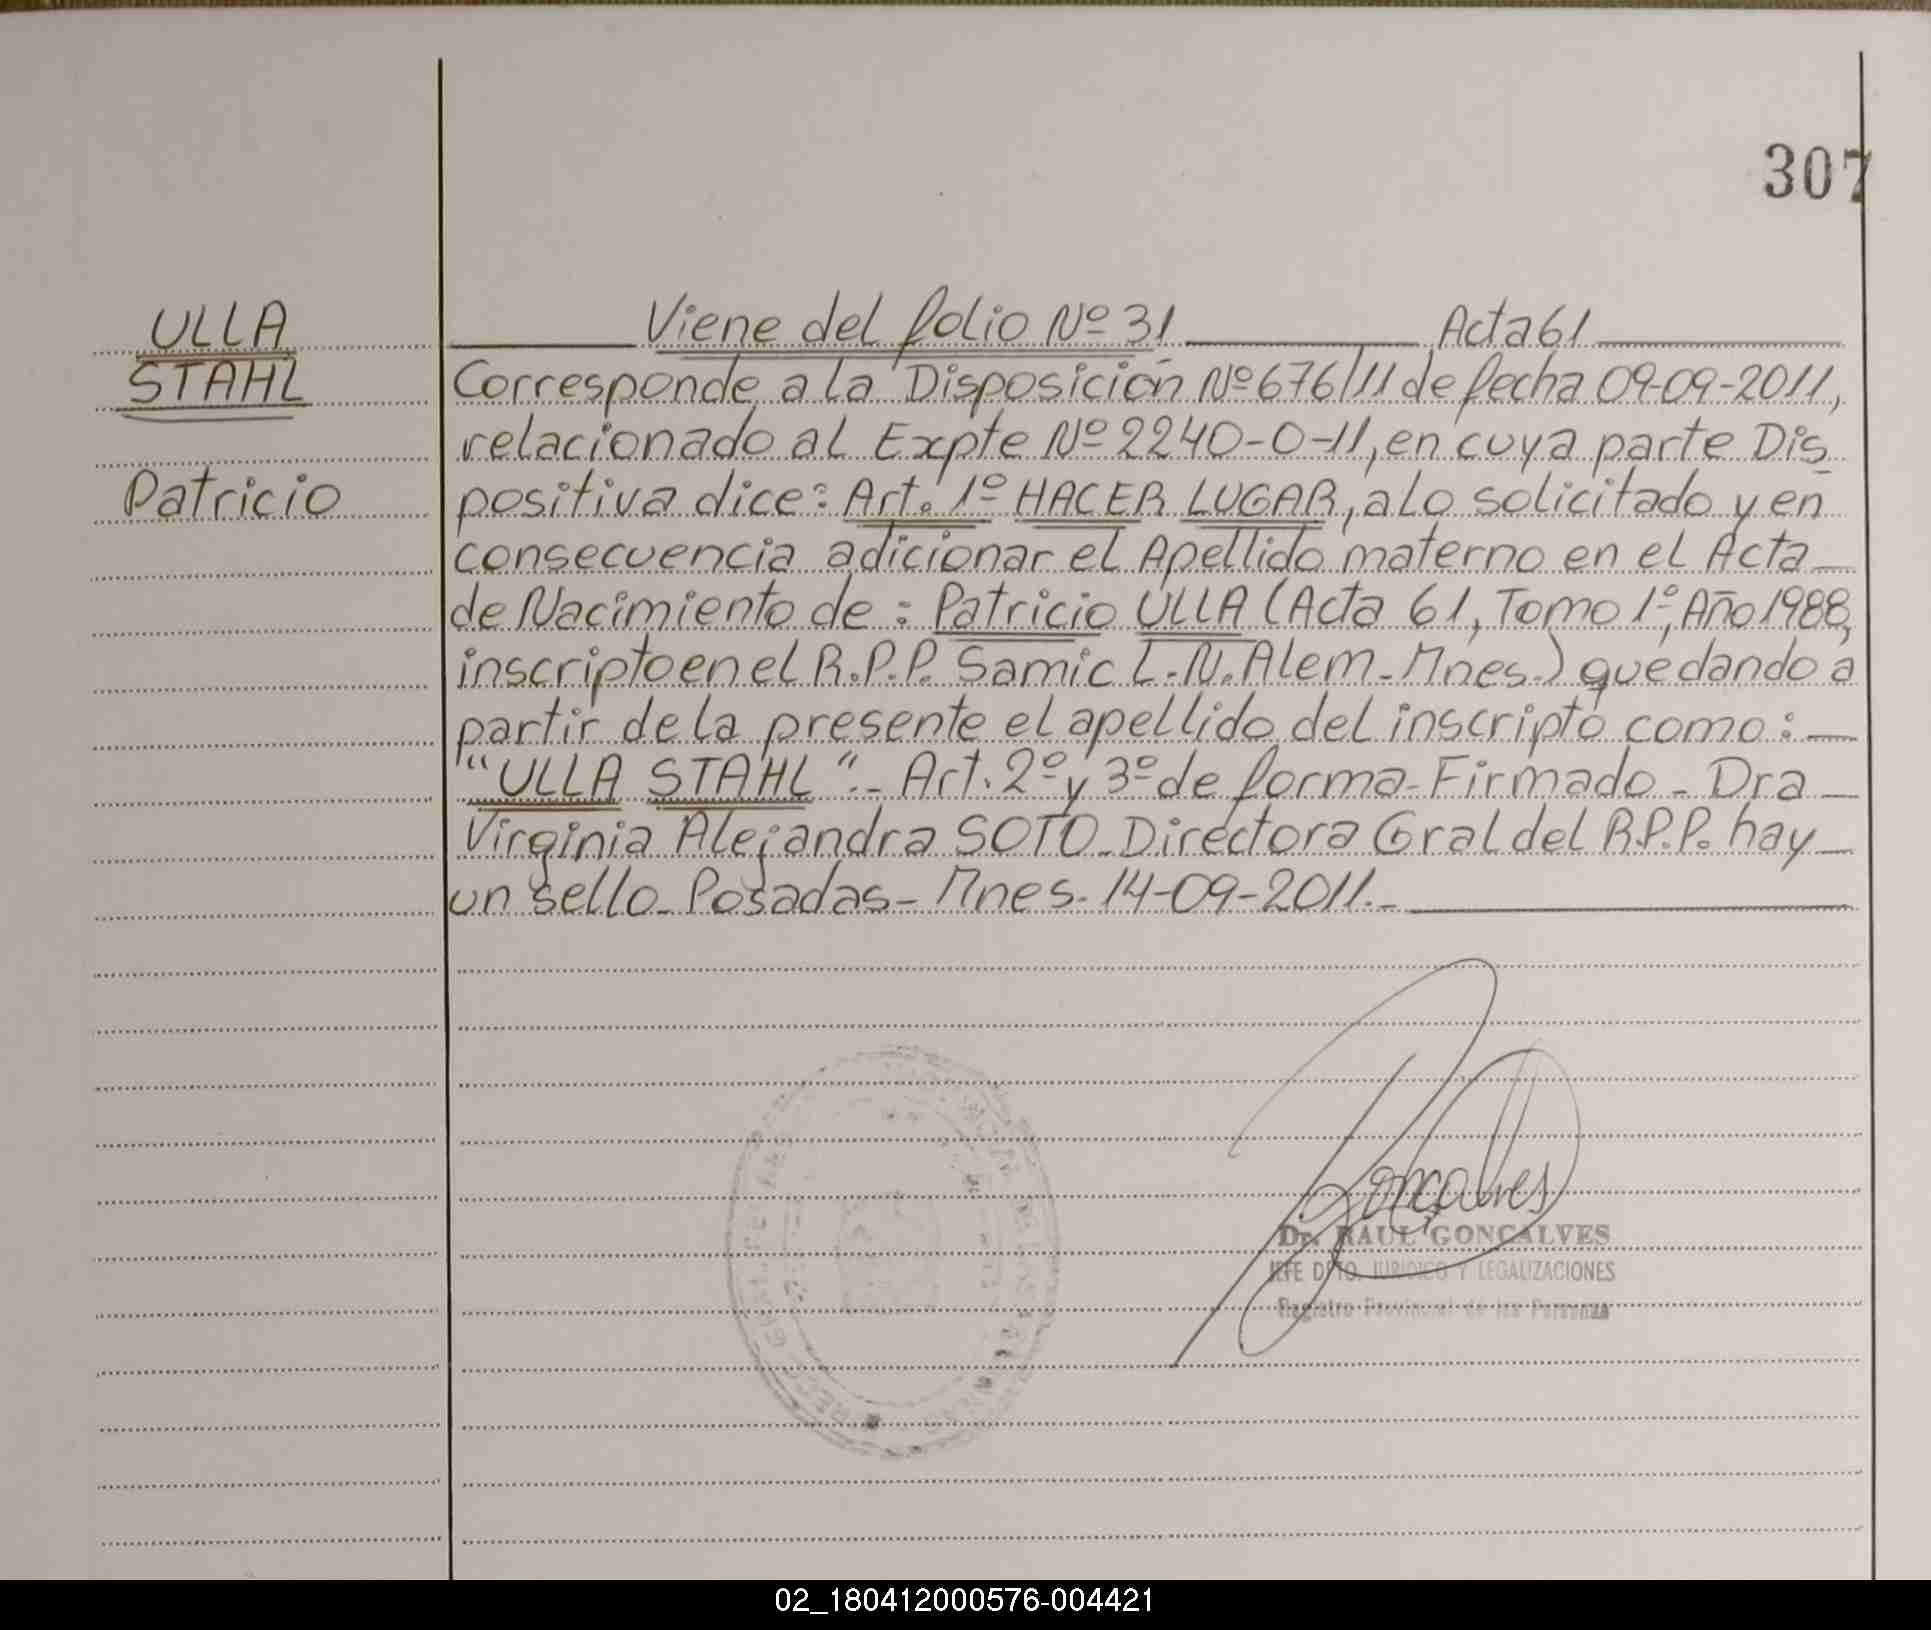 307
ULLA
STAHL
Patricio
Viene del folio Nº 31 Acta 61
Corresponde a la Disposición Nº 676/11 de fecha 09-09-2011,
relacionado al Expte Nº 2240-0-11, en cuya parte Dis_
positiva dice: Art. 1º HACER LUGAR, a lo solicitado y en
consecuencia adicionar el Apellido materno en el Acta
de Nacimiento de: Patricio ULLA (Acta 61, Tomo 1º, Año 1988,
inscripto en el R.P.P. Samic L.N. Alem - Mnes.) quedando a
partir de la presente el apellido del inscripto como:
"ULLA STAHL".- Art. 2º y 3º de forma - Firmado - Dra
Virginia Alejandra SOTO - Directora Gral del R.P.P. hay
un sello - Posadas - Mnes. 14-09-2011.-
Gonçalves
Dr. RAUL GONÇALVES
JEFE DPTO. JURIDICO Y LEGALIZACIONES
Registro Provincial de las Personas
02_180412000576-004421